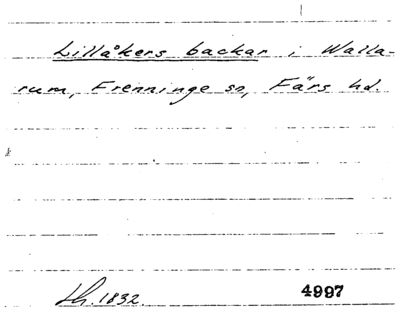 Lillåkers backar i Walla-
rum, Frenninge sn, Färs hd.
Lh. 1832. 4997